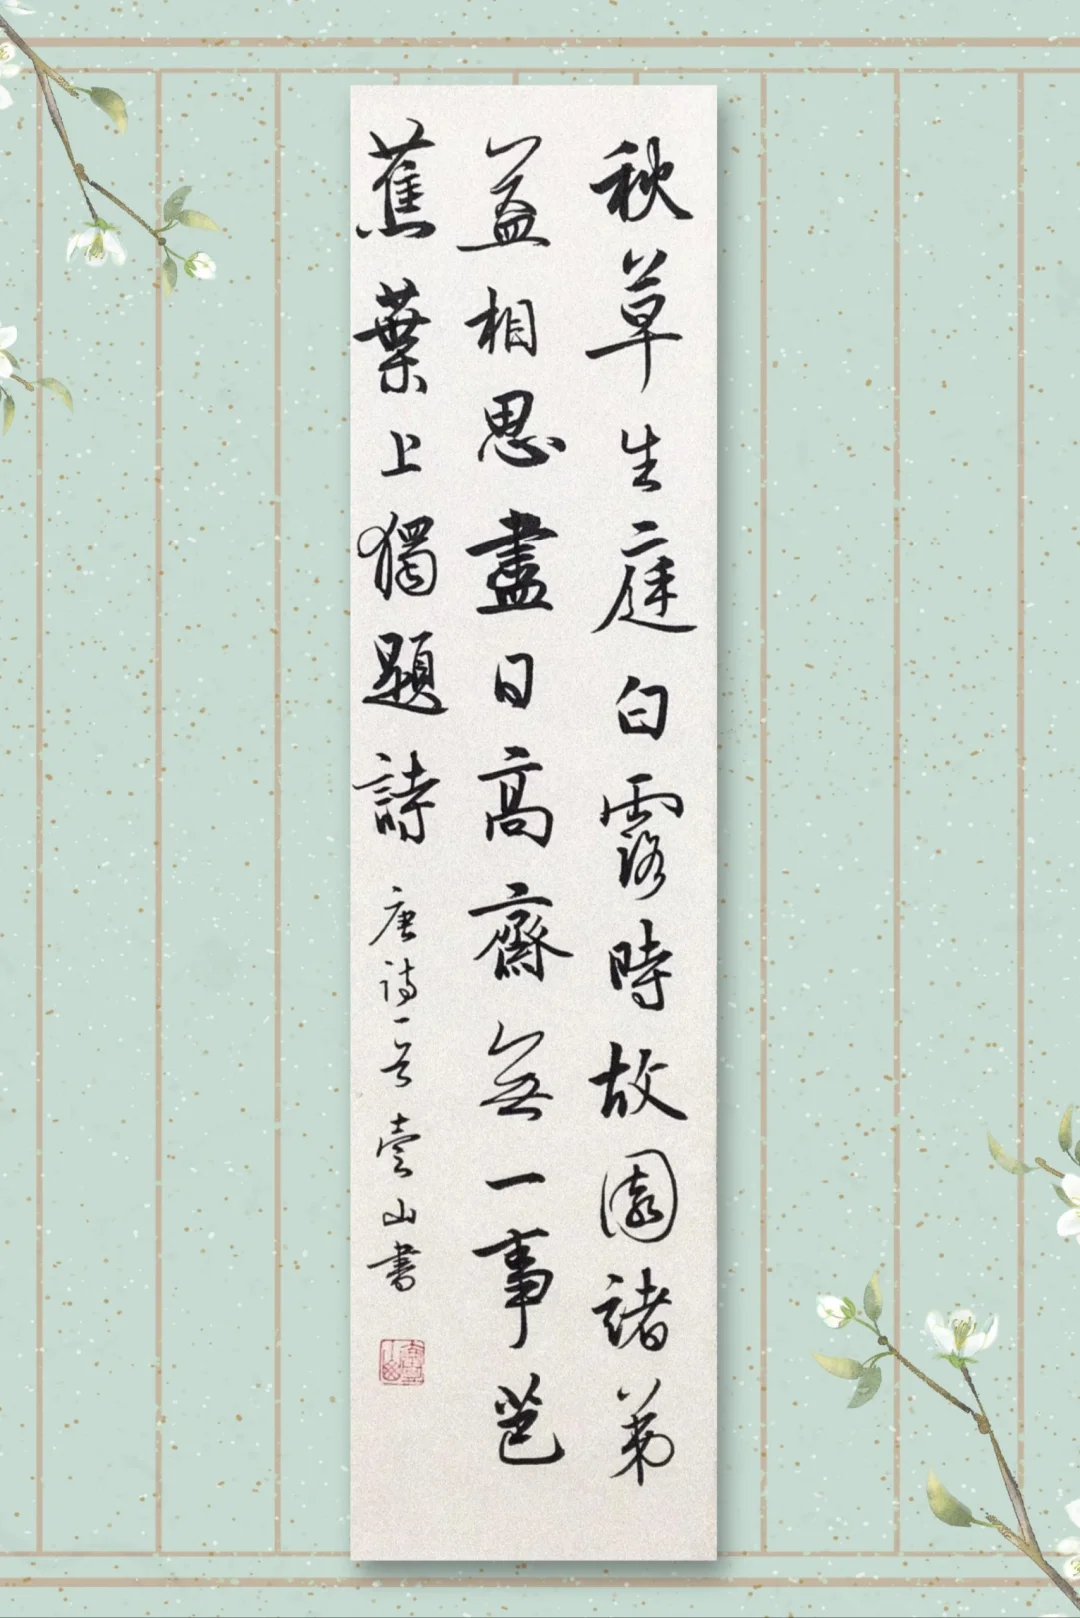 秋草生庭白露時故園諸弟
益相思盡日高齋無一事芭
蕉葉上獨題詩
唐詩一首壹山書